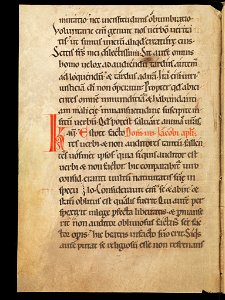 mutatio nec vicissitudinis obumbratio.
Voluntarie enim genuit nos verbo verita
tis. ut simus initium aliquod creature eius.
Scitis frs mei dilectissimi. Sit autem omnis
homo velox ad audiendum. tardus autem
ad loquendum. et tardus ad iram. Ira enim viri
iusticiam di non operatur. Propter quod abi
cientes omnem inmundiciam et habundanti
am malicie. in mansuetudine suscipite in
sitm verbum. Quod potest salvare animas vras.
Kmi. Estote facto Dominus Iacobi apli.
res verbi et non auditores tantum. fallen
tes vosmet ipsos. quia si quis auditor est
verbi et non factor. hic comparabitur viro
consideranti vultum nativitatis sue in
speculo. Consideravit enim se et abiit. et
statim oblitus est qualis fuerit. Qui autem per
spexerit in lege perfecta libertatis. et permanse
rit non auditor obliviosus factus sed fac
tor opis. hic beatus in facto suo erit. Si quis
autem putat se religiosum esse. non refrenans